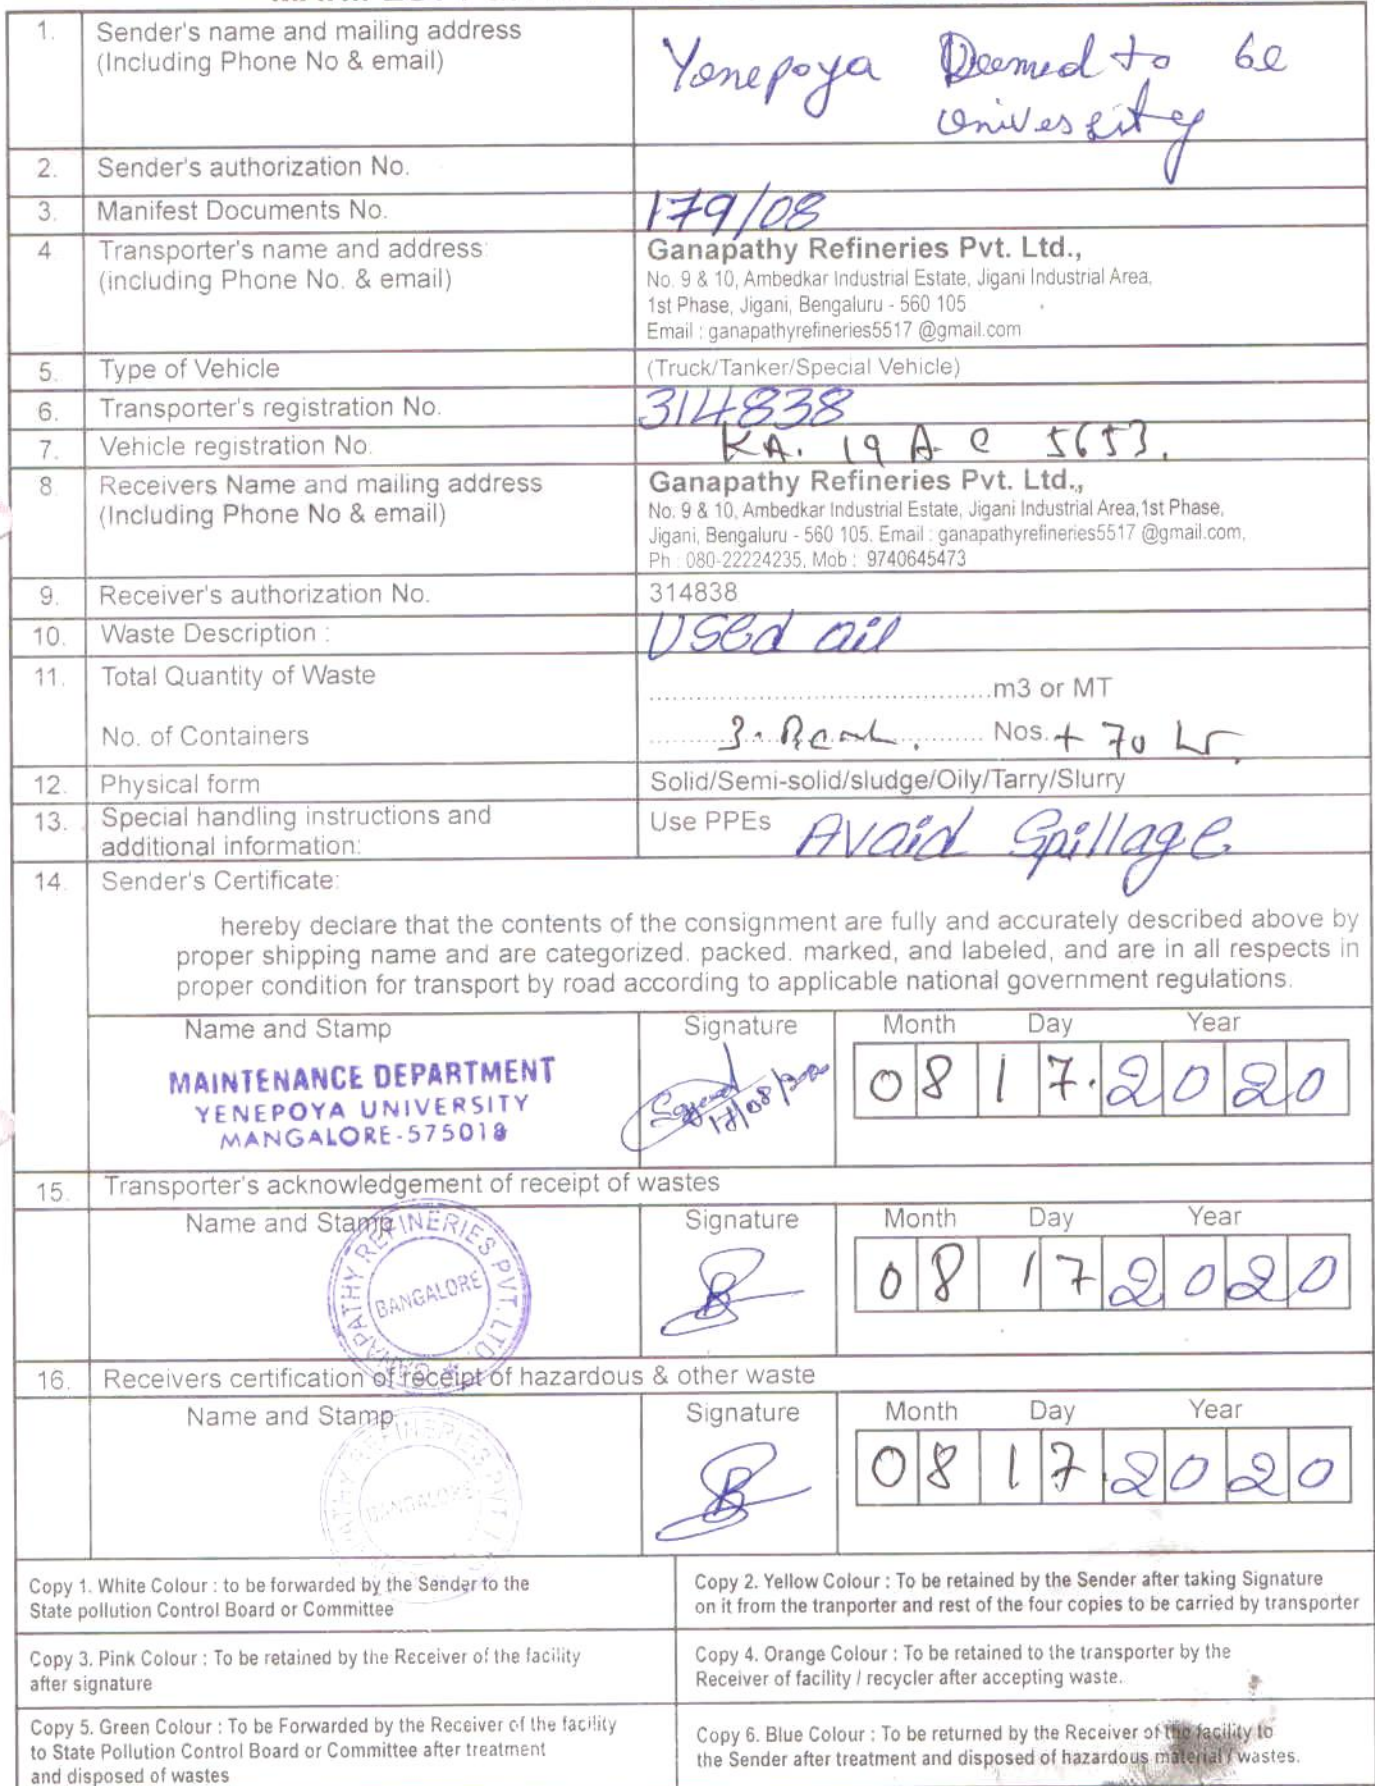 1. Sender's name and mailing address
(Including Phone No & email)
Yenepoya Deemed to be
University
2. Sender's authorization No.
3. Manifest Documents No. 179/08
4 Transporter's name and address
(including Phone No. & email)
Ganapathy Refineries Pvt. Ltd.,
No. 9 & 10, Ambedkar Industrial Estate, Jigani Industrial Area,
1st Phase, Jigani, Bengaluru - 560 105
Email : ganapathyrefineries5517 @gmail.com
5. Type of Vehicle (Truck/Tanker/Special Vehicle)
6. Transporter's registration No. 314838
7. Vehicle registration No. KA. 19 A C 5653.
8. Receivers Name and mailing address
(Including Phone No & email)
Ganapathy Refineries Pvt. Ltd.,
No. 9 & 10, Ambedkar Industrial Estate, Jigani Industrial Area,1st Phase,
Jigani, Bengaluru - 560 105. Email : ganapathyrefineries5517 @gmail.com,
Ph : 080-22224235, Mob : 9740645473
9. Receiver's authorization No. 314838
10. Waste Description : Used oil
11. Total Quantity of Waste ........................................m3 or MT
No. of Containers 3. Nos. + 70 Lr
12. Physical form Solid/Semi-solid/sludge/Oily/Tarry/Slurry
13. Special handling instructions and
additional information:
Use PPEs Avoid Spillage
14. Sender's Certificate:
hereby declare that the contents of the consignment are fully and accurately described above by
proper shipping name and are categorized. packed. marked, and labeled, and are in all respects in
proper condition for transport by road according to applicable national government regulations.
Name and Stamp Signature Month Day Year
MAINTENANCE DEPARTMENT
YENEPOYA UNIVERSITY
MANGALORE-575018
17/08/20
08 17. 2020
15. Transporter's acknowledgement of receipt of wastes
Name and Stamp Signature Month Day Year
GANAPATHY REFINERIES PVT. LTD.
BANGALORE
08 17 2020
16. Receivers certification of receipt of hazardous & other waste
Name and Stamp Signature Month Day Year
BANGALORE
08 17 2020
Copy 1. White Colour : to be forwarded by the Sender to the
State pollution Control Board or Committee
Copy 2. Yellow Colour : To be retained by the Sender after taking Signature
on it from the tranporter and rest of the four copies to be carried by transporter
Copy 3. Pink Colour : To be retained by the Receiver of the facility
after signature
Copy 4. Orange Colour : To be retained to the transporter by the
Receiver of facility / recycler after accepting waste.
Copy 5. Green Colour : To be Forwarded by the Receiver of the facility
to State Pollution Control Board or Committee after treatment
and disposed of wastes
Copy 6. Blue Colour : To be returned by the Receiver of the facility to
the Sender after treatment and disposed of hazardous material / wastes.